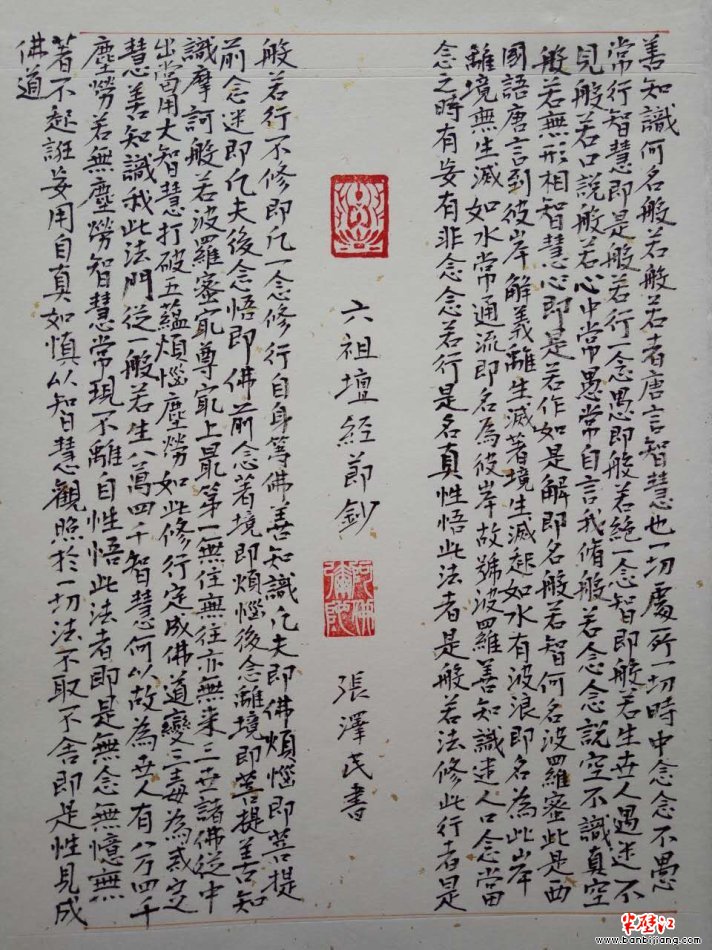 善知識何名般若般若者唐言智慧也一切處所一切時中念念不愚
常行智慧即是般若行一念愚即般若絕一念智即般若生世人遇迷不
見般若口說般若心中常愚常自言我脩般若念念說空不識真空
般若無形相智慧心即是若作如是解即名般若智何名波羅蜜此是西
國語唐言到彼岸解義離生滅著境生滅起如水有波浪即名為此岸
離境無生滅如水常通流即名為彼岸故號波羅善知識迷人口念當
念之時有妄有非念念若行是名真性悟此法者是般若法修此行者是
六祖壇經節鈔
張澤民書
般若行不修即凡一念修行自身等佛善知識凡夫即佛煩惱即菩提
前念迷即凡夫後念悟即佛前念著境即煩惱後念離境即菩提善知
識摩訶般若波羅蜜最尊最上最第一無住無往亦無來三世諸佛從中
出當用大智慧打破五蘊煩惱塵勞如此修行定成佛道變三毒為戒定
慧善知識我此法門從一般若生八萬四千智慧何以故為世人有八万四千
塵勞若無塵勞智慧常現不離自性悟此法者即是無念無憶無
著不起誑妄用自真如慎以知智慧觀照於一切法不取不舍即是性見成
佛道
半壁江
www.banbijiang.com